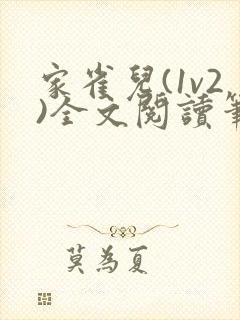 家雀兒(1v2
)全文閱讀筆
莫為夏